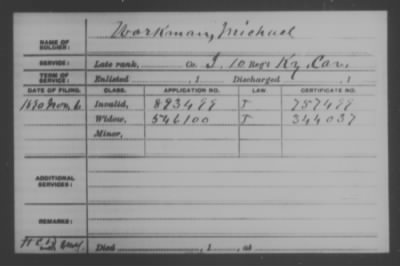 NAME OF SOLDIER: Workman, Michael
SERVICE: Late rank, Co. I, 10 Reg't Ky. Cav.
TERM OF SERVICE: Enlisted , 1 Discharged , 1
DATE OF FILING. CLASS. APPLICATION NO. LAW. CERTIFICATE NO.
1890 Nov. 6 Invalid, 893499 J 757499
Widow, 546100 J 344037
Minor,
ADDITIONAL SERVICES:
REMARKS:
Died , 1 , at